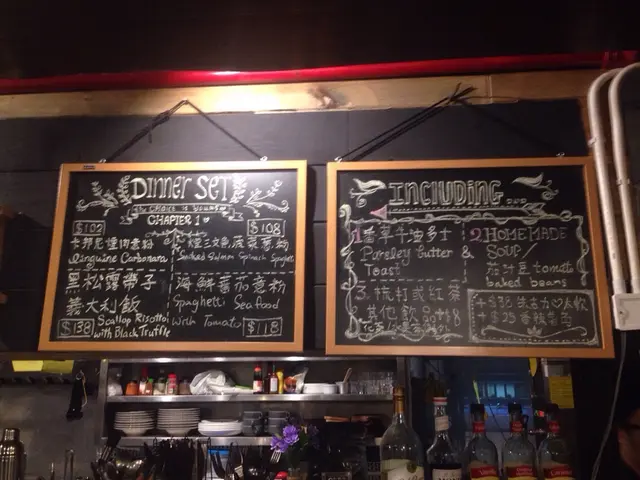 DINNER SET
My Choice is Yours
CHAPTER 1
$102
$108
卡邦尼煙肉意粉
Linguine Carbonara
煙三文魚菠菜意粉
Smoked Salmon Spinach Spaghetti
黑松露帶子
義大利飯
Scallop Risotto
with Black Truffle
$138
海鮮蕃茄意粉
Spaghetti Seafood
With Tomato
$118
INCLUDING...
1. 香草牛油多士
Parsley butter &
Toast
2. HOMEMADE
SOUP/
茄汁豆 tomato
baked beans
3. 梳打或紅茶
其他飲品+$8
+$38
+$25